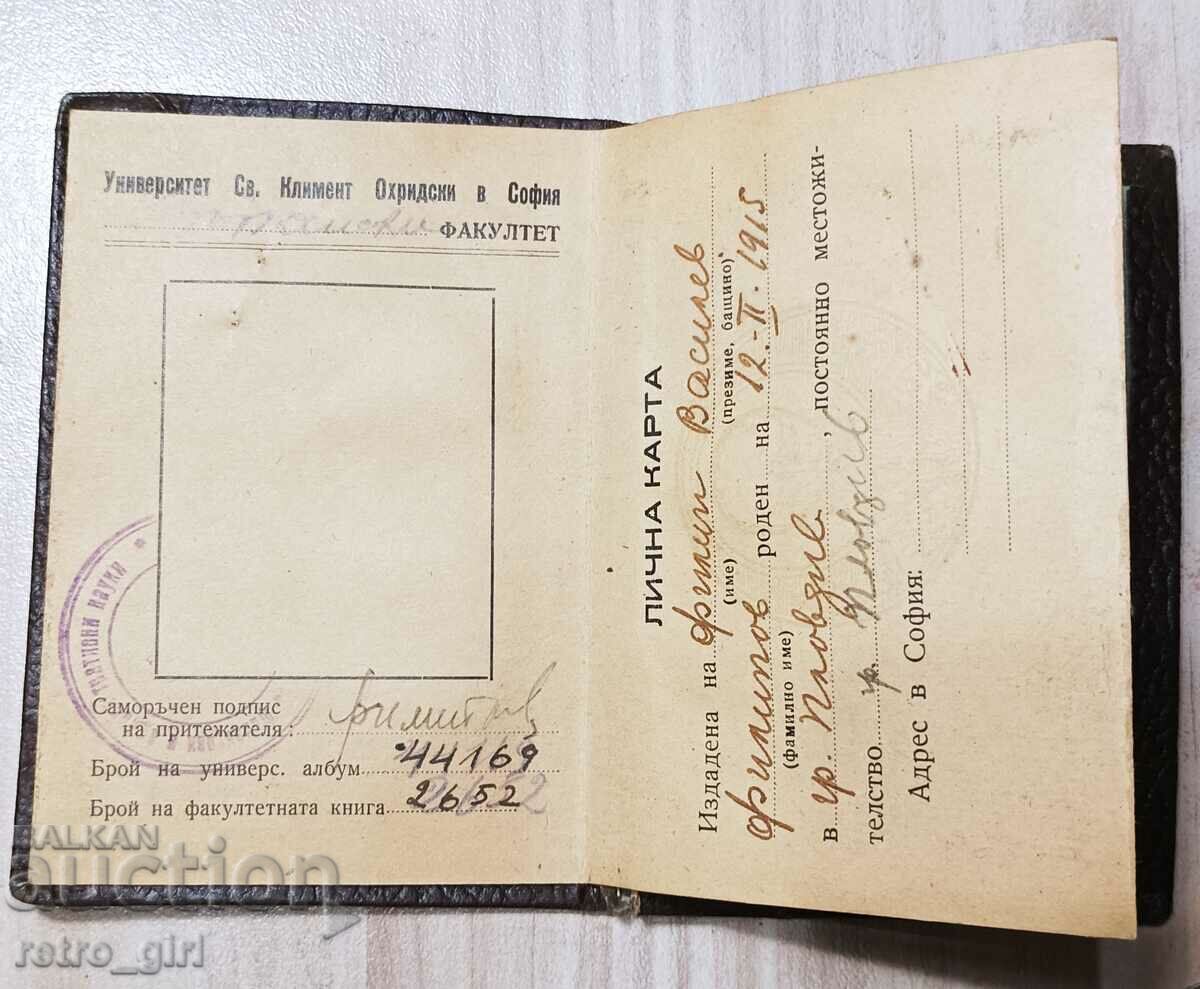 Университет Св. Климент Охридски в София
ФАКУЛТЕТ
Саморъчен подпис
на притежателя:
Брой на универс. албум 44169
Брой на факултетната книга 2652
науки
ЛИЧНА КАРТА
Издадена на Филип Василев
(име) (презиме, бащино)
Филипов роден на 12.-II.1915
(фамилно име)
в гр. Пловдив, постоянно местожи-
телство гр. Пловдив
Адрес в София:
BALKAN
auction
retro_girl